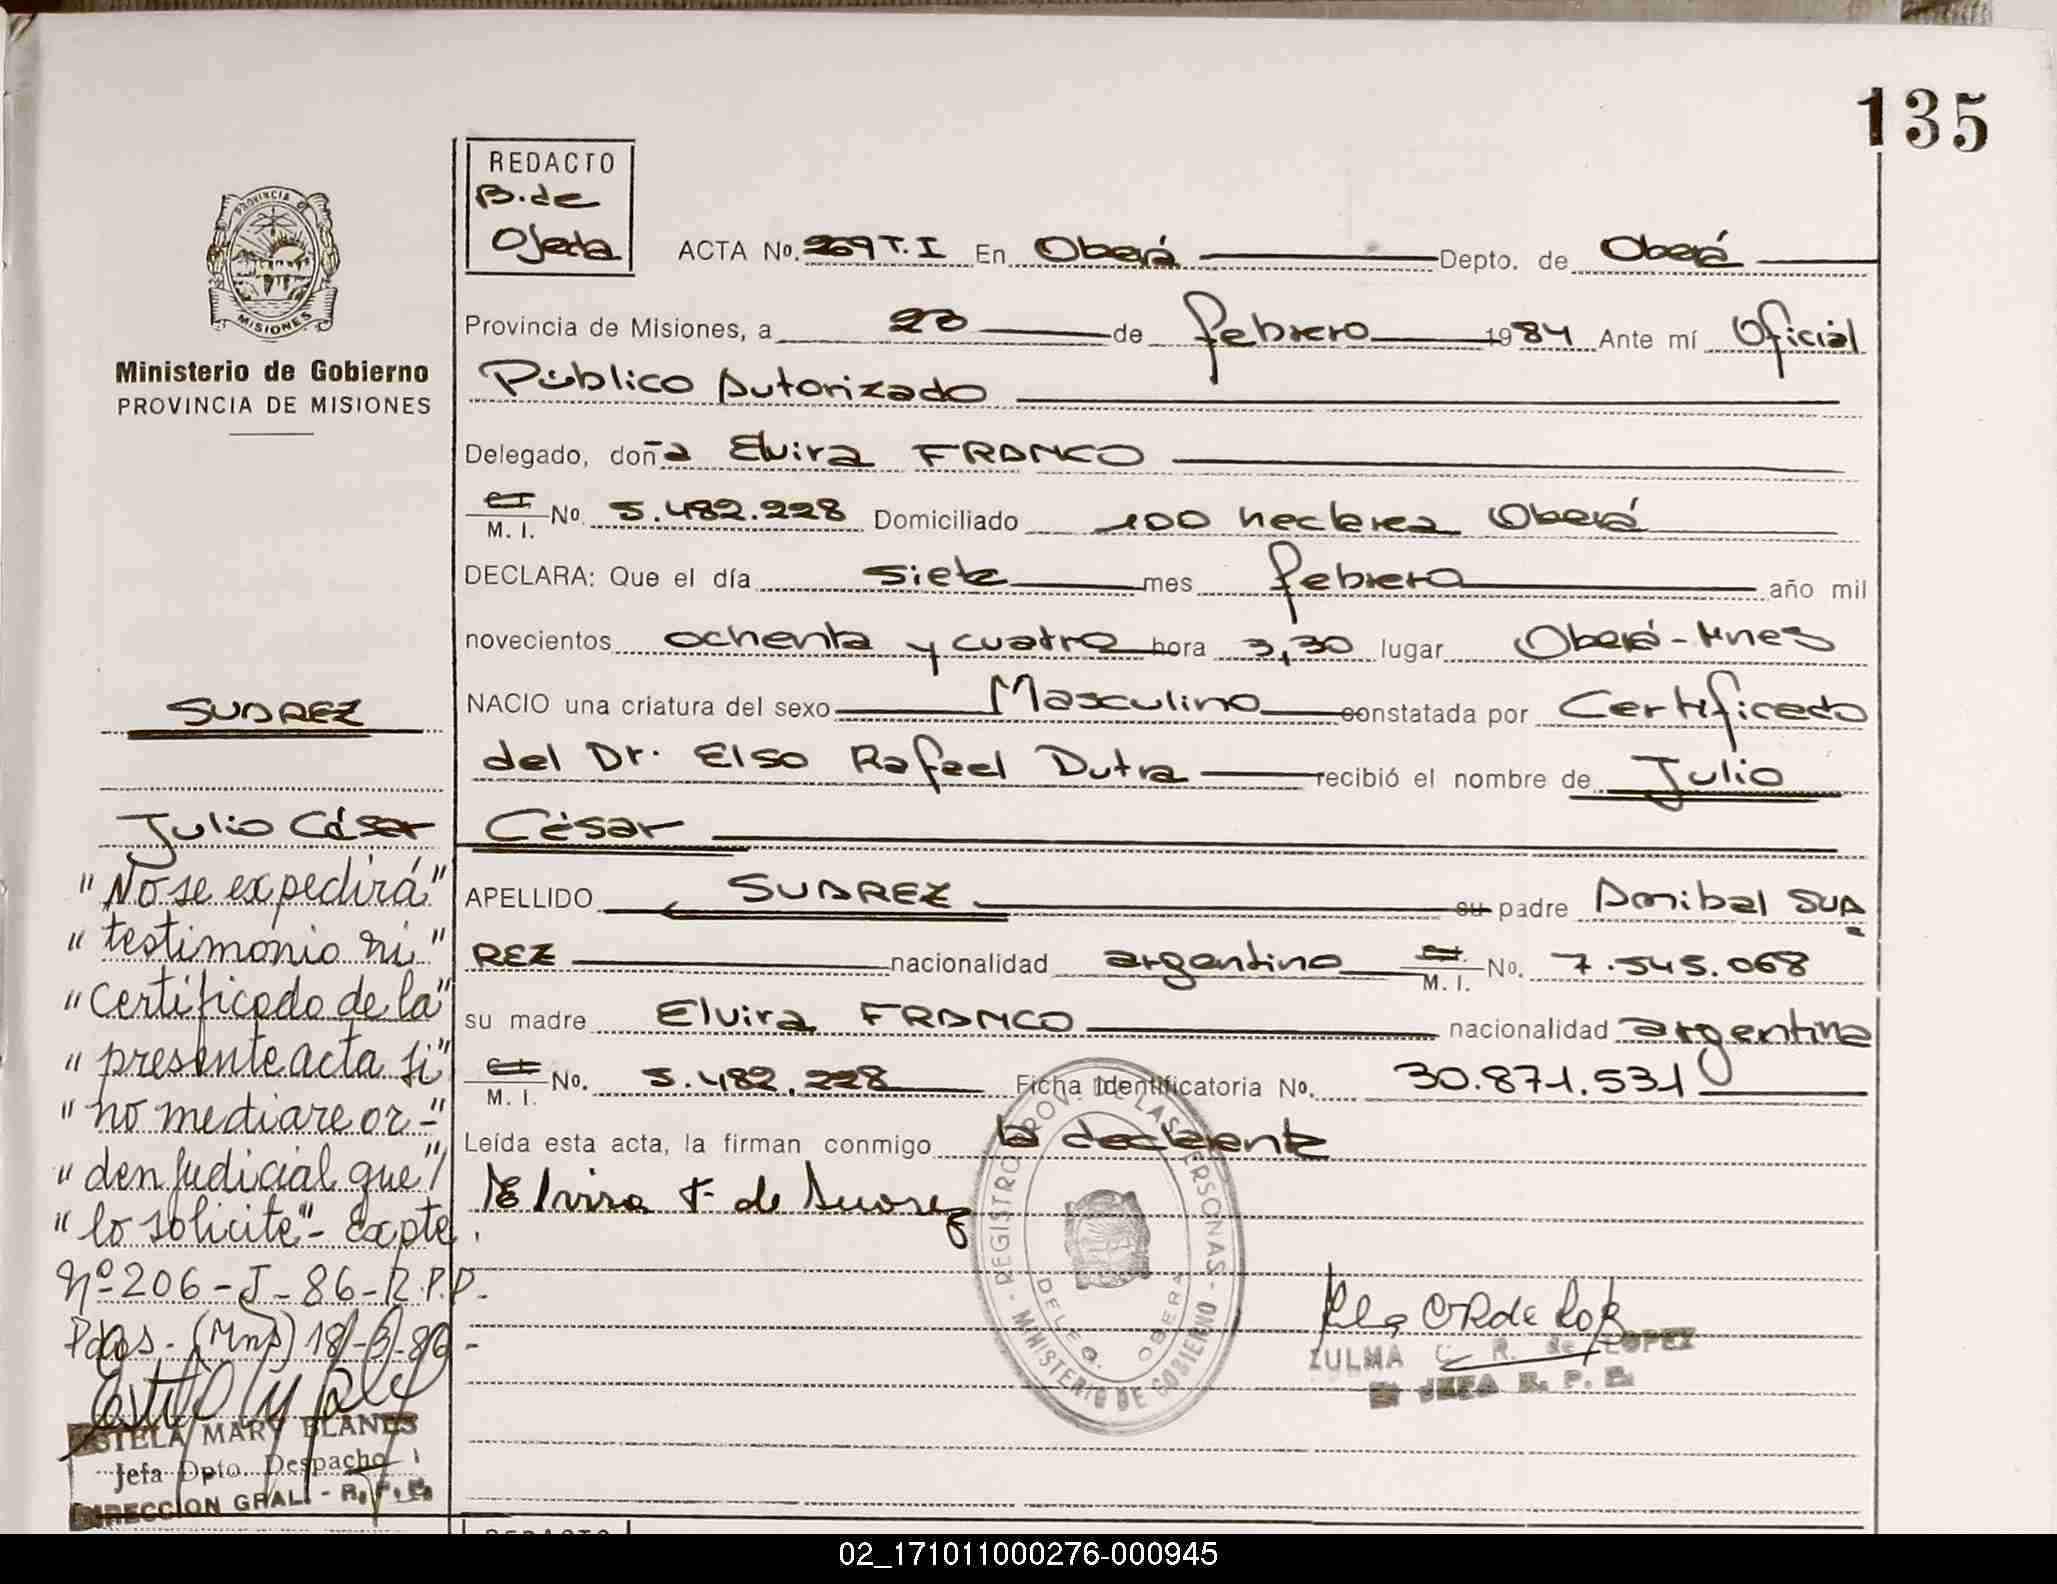 135
REDACTO
B. de
Ojeda
ACTA No. 269 T. I En Oberá Depto. de Oberá
Provincia de Misiones, a 20 de febrero 1984 Ante mí Oficial
Público Autorizado
Delegado, doña Elvira FRANCO
C.I.
M. I. No. 5.482.228 Domiciliado 100 hectarea Oberá
DECLARA: Que el día siete mes febrero año mil
novecientos ochenta y cuatro hora 3,30 lugar Oberá-Mnes
NACIO una criatura del sexo Masculino constatada por Certificado
del Dr. Elso Rafael Dutra recibió el nombre de Julio
César
APELLIDO SUAREZ su padre Anibal SUA
REZ nacionalidad argentino C.I.
M. I. No. 7.545.068
su madre Elvira FRANCO nacionalidad argentina
C.I.
M. I. No. 5.482.228 Ficha Identificatoria No. 30.871.531
Leída esta acta, la firman conmigo la declarante
Elvira F. de Suarez
REGISTRO PROV. DE LAS PERSONAS - MINISTERIO DE GOBIERNO -
DELEG. OBERA
ZULMA C. R. de LOPEZ
JEFA R. P. P.
PROVINCIA DE
MISIONES
Ministerio de Gobierno
PROVINCIA DE MISIONES
SUAREZ
Julio César
"No se expedirá"
"testimonio ni"
"Certificado de la"
"presente acta si"
"no mediare or-"
"den Judicial que"
"lo solicite"- Expte.
Nº 206-J-86-R.P.P.-
Pdas.-(Mns) 18-3-86-
ESTELA MARY BLANES
Jefa Dpto. Despacho
DIRECCION GRAL. - R. P. P.
REDACTO
02_171011000276-000945